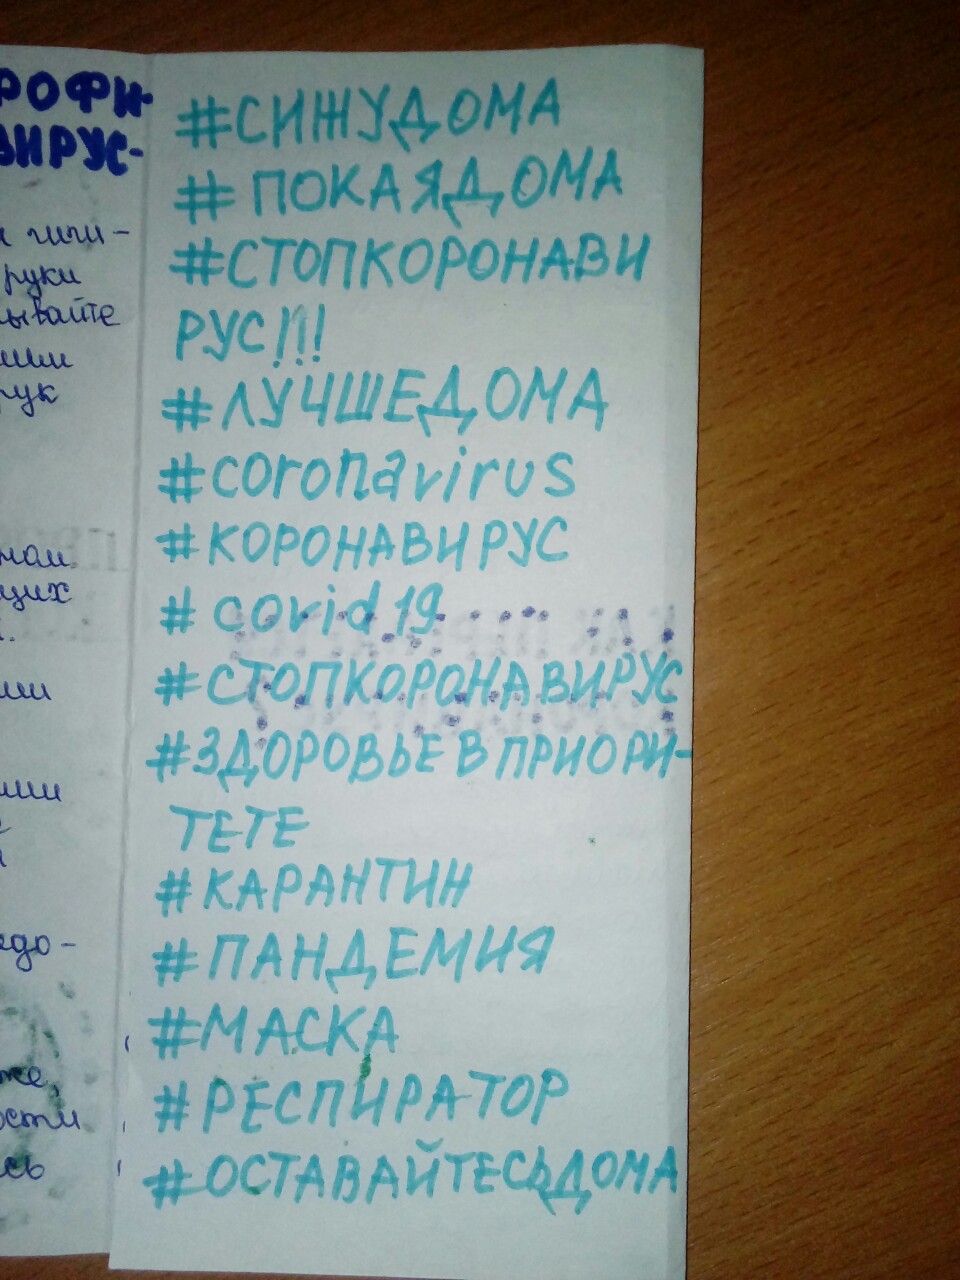 РОФИ-
ВИРУС-
гиги-
руки
рук
#СИЖУДОМА
#ПОКАЯДОМА
#СТОПКОРОНАВИ
РУС!!!
#ЛУЧШЕДОМА
#coronavirus
#КОРОНАВИРУС
#covid19
#СТОПКОРОНАВИРУС
#ЗДОРОВЬЕВПРИОРИ-
ТЕТЕ
#КАРАНТИН
#ПАНДЕМИЯ
#МАСКА
#РЕСПИРАТОР
#ОСТАВАЙТЕСЬДОМА